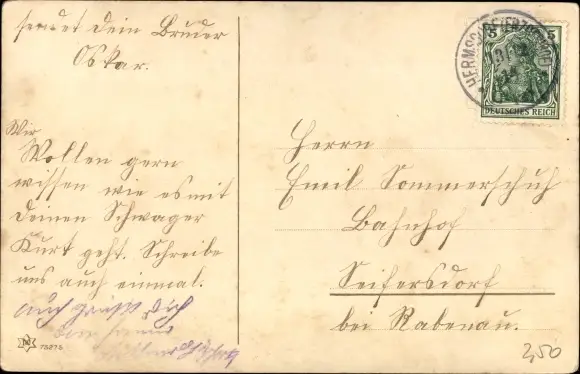 sendet dein Bruder
Oskar.
Wir
Wollen gern
wissen wie es mit
deinen Schwager
Kurt geht. Schreibe
uns auch einmal.
auch grüßt dich
Herrn
Emil Sommerschuh
Bahnhof
Seifersdorf
bei Rabenau.
5 5
DEUTSCHES REICH
2,50